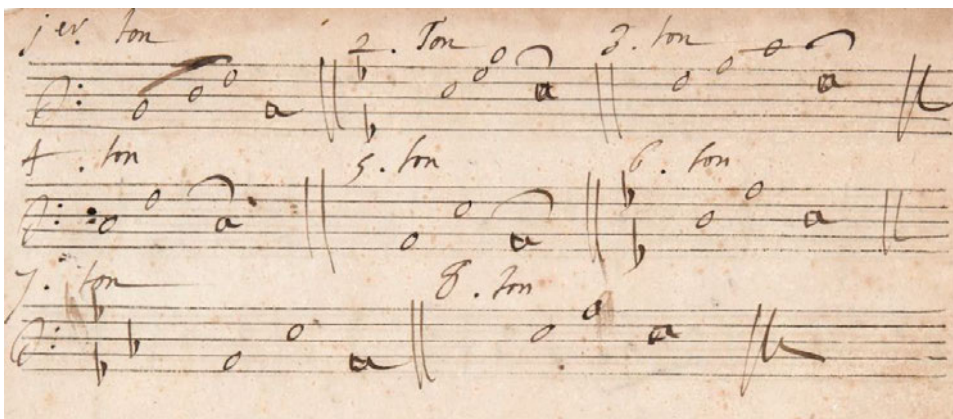 1 er. ton 2. Ton 3. ton
4. ton 5. ton 6. ton
7. ton 8. ton